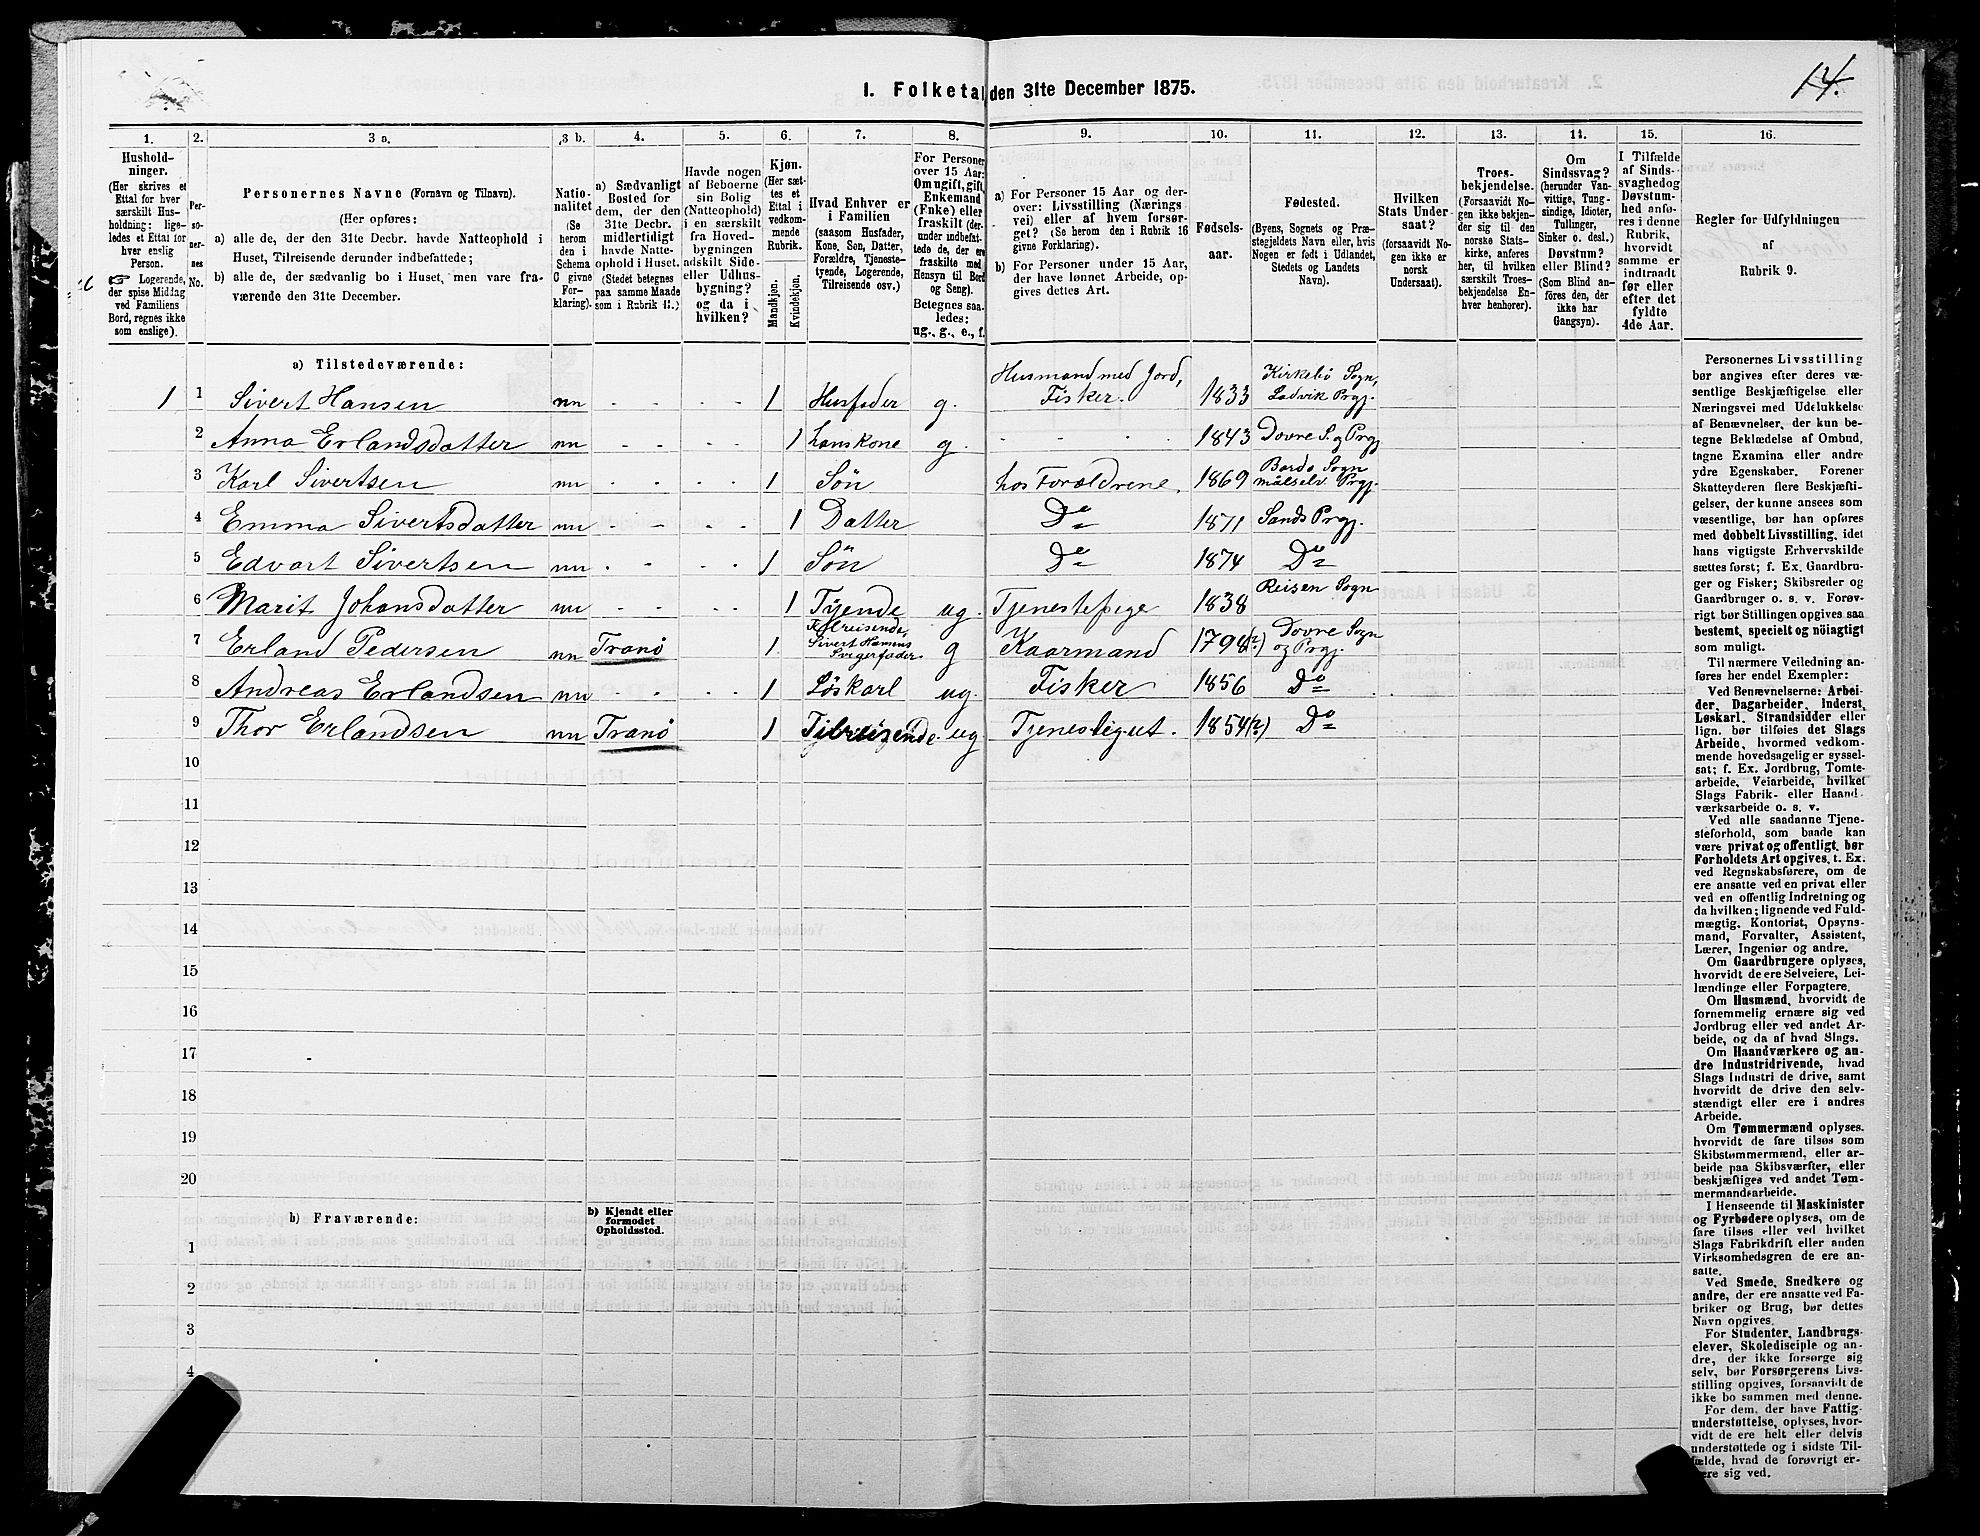 14.
1. Folketal den 31te December 1875.
1. 2. 3 a. 3 b. 4. 5. 6. 7. 8. 9. 10. 11. 12. 13. 14. 15. 16.
Hushold-
ninger.
(Her skrives et
Ettal for hver
særskilt Hus-
holdning; lige-
ledes et Ettal for
hver enslig
Person.
Logerende,
der spise Middag
ved Familiens
Bord, regnes ikke
som enslige).
Per-
so-
ner-
nes
No.
Personernes Navne (Fornavn og Tilnavn).
(Her opføres:
a) alle de, der den 31te Decbr. havde Natteophold i
Huset, Tilreisende derunder indbefattede;
b) alle de, der sædvanlig bo i Huset, men vare fra-
værende den 31te December.
Natio-
nalitet
(Se
herom
den i
Schema
G givne
For-
klaring).
a) Sædvanligt
Bosted for
dem, der den
31te Decbr.
midlertidigt
havde Natte-
ophold i Huset.
(Stedet betegnes
paa samme Maade
som i Rubrik 11.)
Havde nogen
af Beboerne
sin Bolig
(Natteophold)
i en særskilt
fra Hoved-
bygningen
adskilt Side-
eller Udhus-
bygning?
og da i
hvilken?
Kjøn.
(Her sæt-
tes et
Ettal i
vedkom-
mende
Rubrik.
Mandkjøn.
Kvindekjøn.
Hvad Enhver er
i Familien
(saasom Husfader,
Kone, Søn, Datter,
Forældre, Tjeneste-
tyende, Logerende,
Tilreisende osv.)
For Personer
over 15 Aar:
Om ugift, gift,
Enkemand
(Enke) eller
fraskilt (der-
under indbefat-
tede de, der ere
fraskilte med
Hensyn til Bord
og Seng).
Betegnes saa-
ledes:
ug., g., e., f.
a) For Personer 15 Aar og der-
over: Livsstilling (Nærings-
vei) eller af hvem forsør-
get? (Se herom den i Rubrik 16
givne Forklaring).
b) For Personer under 15 Aar,
der have lønnet Arbeide, op-
gives dettes Art.
Fødsels-
aar.
Fødested.
(Byens, Sognets og Præ-
stegjeldets Navn eller, hvis
Nogen er født i Udlandet,
Stedets og Landets
Navn).
Hvilken
Stats Under-
saat?
(forsaavidt No-
gen ikke er
norsk
Undersaat).
Troes-
bekjendelse.
(Forsaavidt No-
gen ikke bekjen-
der sig til den
norske Stats-
kirke, anføres
her, til hvilken
særskilt Troes-
bekjendelse En-
hver henhører).
Om
Sindssvag?
(herunder Van-
vittige, Tung-
sindige, Idioter,
Tullinger,
Sinker o. desl.)
Døvstum?
eller Blind?
(Som Blind an-
føres den, der
ikke har
Gangsyn).
I Tilfælde
af Sinds-
svaghed og
Døvstum-
hed anfø-
res i denne
Rubrik,
hvorvidt
samme er
indtraadt
før eller
efter det
fyldte
4de Aar.
Regler for Udfyldningen
af
Rubrik 9.
a) Tilstedeværende:
1 1 Sivert Hansen nn - - - - 1 Husfader g. Husmand med Jord, Fisker. 1833 Kirkebø Sogn, Ladvik Prgj.
2 Anna Erlandsdatter nn - - - - 1 hans kone g. - - - - 1843 Dovre S. og Prgj.
3 Karl Sivertsen nn - - - - 1 Søn hos Forældrene. 1869 Bardo Sogn Målselv. Prgj.
4 Emma Sivertsdatter nn - - - - 1 Datter Do 1871 Sands Prgj.
5 Edvart Sivertsen nn - - - - 1 Søn Do 1874 Do
6 Marit Johansdatter nn - - - - 1 Tyende ug. Tjenestepige 1838 Reisen Sogn
7 Erland Pedersen nn Tranø 1 Tilreisende, Sivert Hansens Svigerfader g Kaarmand 1798(?) Dovre Sogn og Prgj.
8 Andreas Erlandsen nn - - - - 1 Løskarl ug. Fisker 1856 Do
9 Thor Erlandsen nn Tranø 1 Tilreisende. ug Tjenestegut. 1854(?) Do
10
11
12
13
14
15
16
17
18
19
20
b) Fraværende:
b) Kjendt eller
formodet
Opholdssted.
1
2
3
4
Personernes Livsstilling
bør angives efter deres væ-
sentlige Beskjæftigelse eller
Næringsvei med Udelukkelse
af Benævnelser, der kun be-
tegne Beklædelse af Ombud,
tagne Examina eller andre
ydre Egenskaber. Forener
Skatteyderen flere Beskjæfti-
gelser, der kunne ansees som
væsentlige, bør han opføres
med dobbelt Livsstilling, idet
hans vigtigste Erhvervskilde
sættes først; f. Ex. Gaardbru-
ger og Fisker; Skibsreder og
Gaardbruger o. s. v. Forøv-
rigt bør Stillingen opgives saa
bestemt, specielt og nöiagtigt
som muligt.
Til nærmere Veiledning an-
føres her endel Exempler:
Ved Benævnelserne: Arbei-
der, Dagarbeider, Inderst,
Løskarl, Strandsidder eller
lign. bør tilføies det Slags
Arbeide, hvormed vedkom-
mende hovedsagelig er syssel-
sat; f. Ex. Jordbrug, Tomte-
arbeide, Veiarbeide, hvilket
Slags Fabrik- eller Haand-
værksarbeide o. s. v.
Ved alle saadanne Tjene-
steforhold, som baade kan
være privat og offentligt, bør
Forholdets Art opgives, t. Ex.
ved Regnskabsførere, om de
ere ansatte ved en privat eller
ved en offentlig Indretning og
da hvilken; lignende ved Fuld-
mægtig, Kontorist, Opsyns-
mand, Forvalter, Assistent,
Lærer, Ingeniør og andre.
Om Gaardbrugere oplyses,
hvorvidt de ere Selveiere, Lei-
lændinge eller Forpagtere.
Om Husmænd, hvorvidt de
fornemmelig ernære sig ved
Jordbrug eller ved andet Ar-
beide, og da af hvad Slags.
Om Haandværkere og an-
dre Industridrivende, hvad
Slags Industri de drive, samt
hvorvidt de drive den selv-
stændigt eller ere i andres
Arbeide.
Om Tømmermænd oplyses,
hvorvidt de fare tilsøs som
Skibstømmermænd, eller ar-
beide paa Skibsværfter, eller
beskjæftiges ved andet Tøm-
mermandsarbeide.
I Henseende til Maskinister
og Fyrbødere oplyses, om de
fare tilsøs eller ved hvilket
Slags Fabrikdrift eller anden
Virksomhedsgren de ere an-
satte.
Ved Smede, Snedkere og
andre, der ere ansatte ved Fa-
briker og Brug, bør dettes
Navn opgives.
For Studenter, Landbrugs-
elever, Skoledisciple og an-
dre, der ikke forsørge sig
selv, bør Forsørgerens Livs-
stilling opgives, forsaavidt de
ikke bo sammen med denne.
For dem, der have Fattig-
understøttelse, oplyses, hvor-
vidt de ere helt eller delvis
understøttede og i sidste Til-
fælde, hvad de forøvrigt er-
nære sig ved.